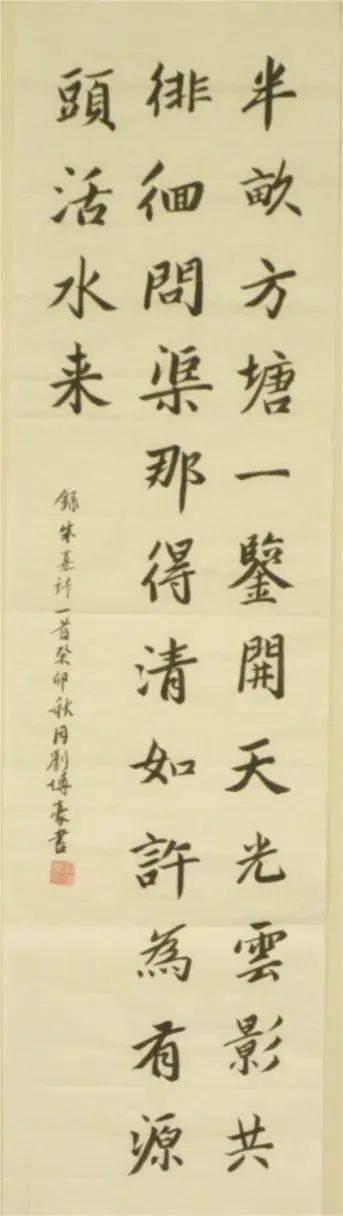 半畝方塘一鑒開天光雲影共
徘徊問渠那得清如許為有源
頭活水来
錄朱熹詩一首癸卯秋月劉博豪書